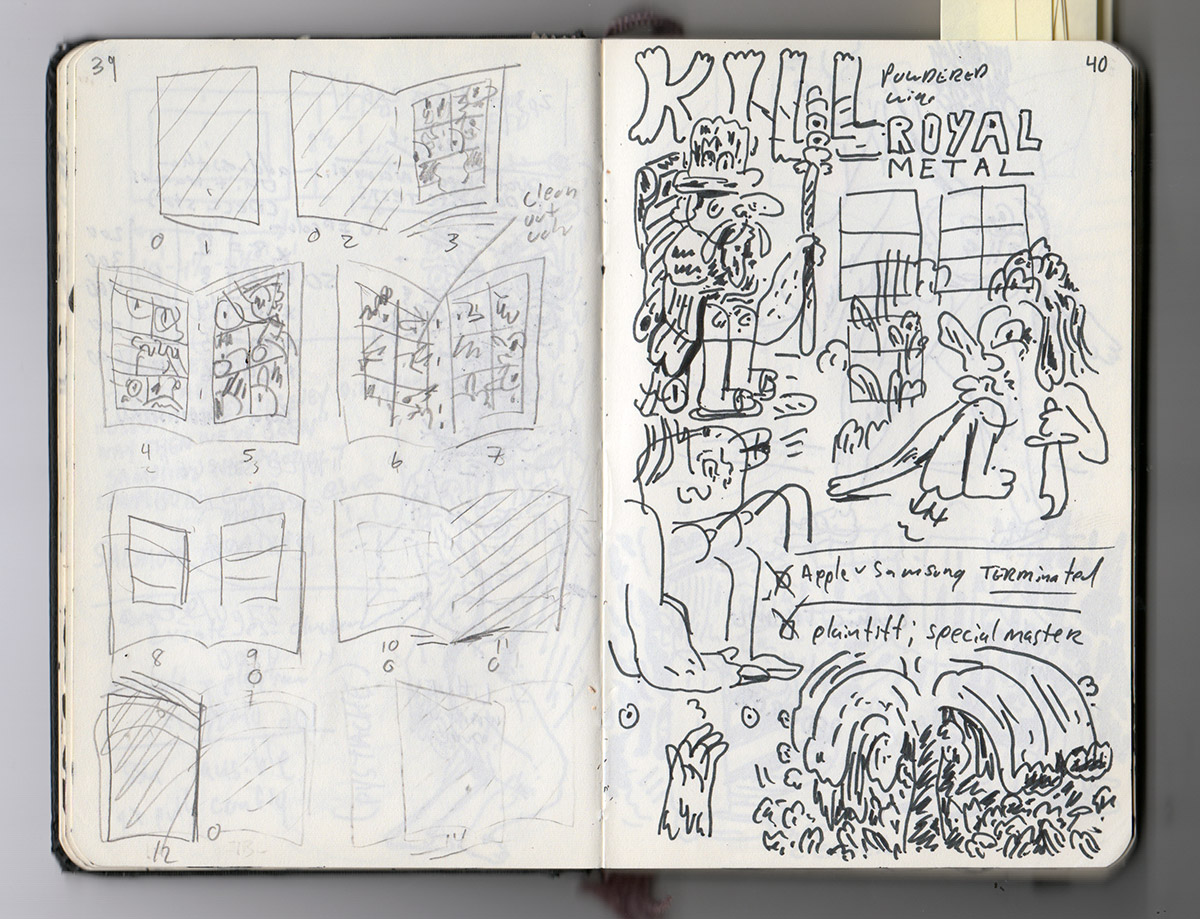 39
0 1 0 2 3
clean
4 5 6 7
8 9
0
7
10 11
6 0
12 0 13 14
40
KILL
POWDERED
ROYAL
METAL
Apple v Samsung TERMinated
plaintiff; special master